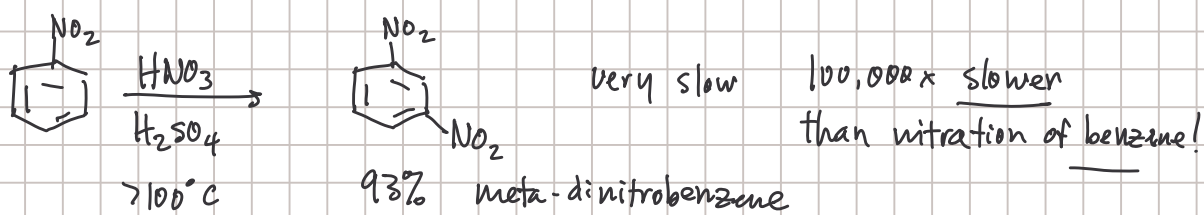 NO2
HNO3
H2SO4
>100°C
NO2
NO2
93% meta-dinitrobenzene
very slow
100,000x slower
than nitration of benzene!